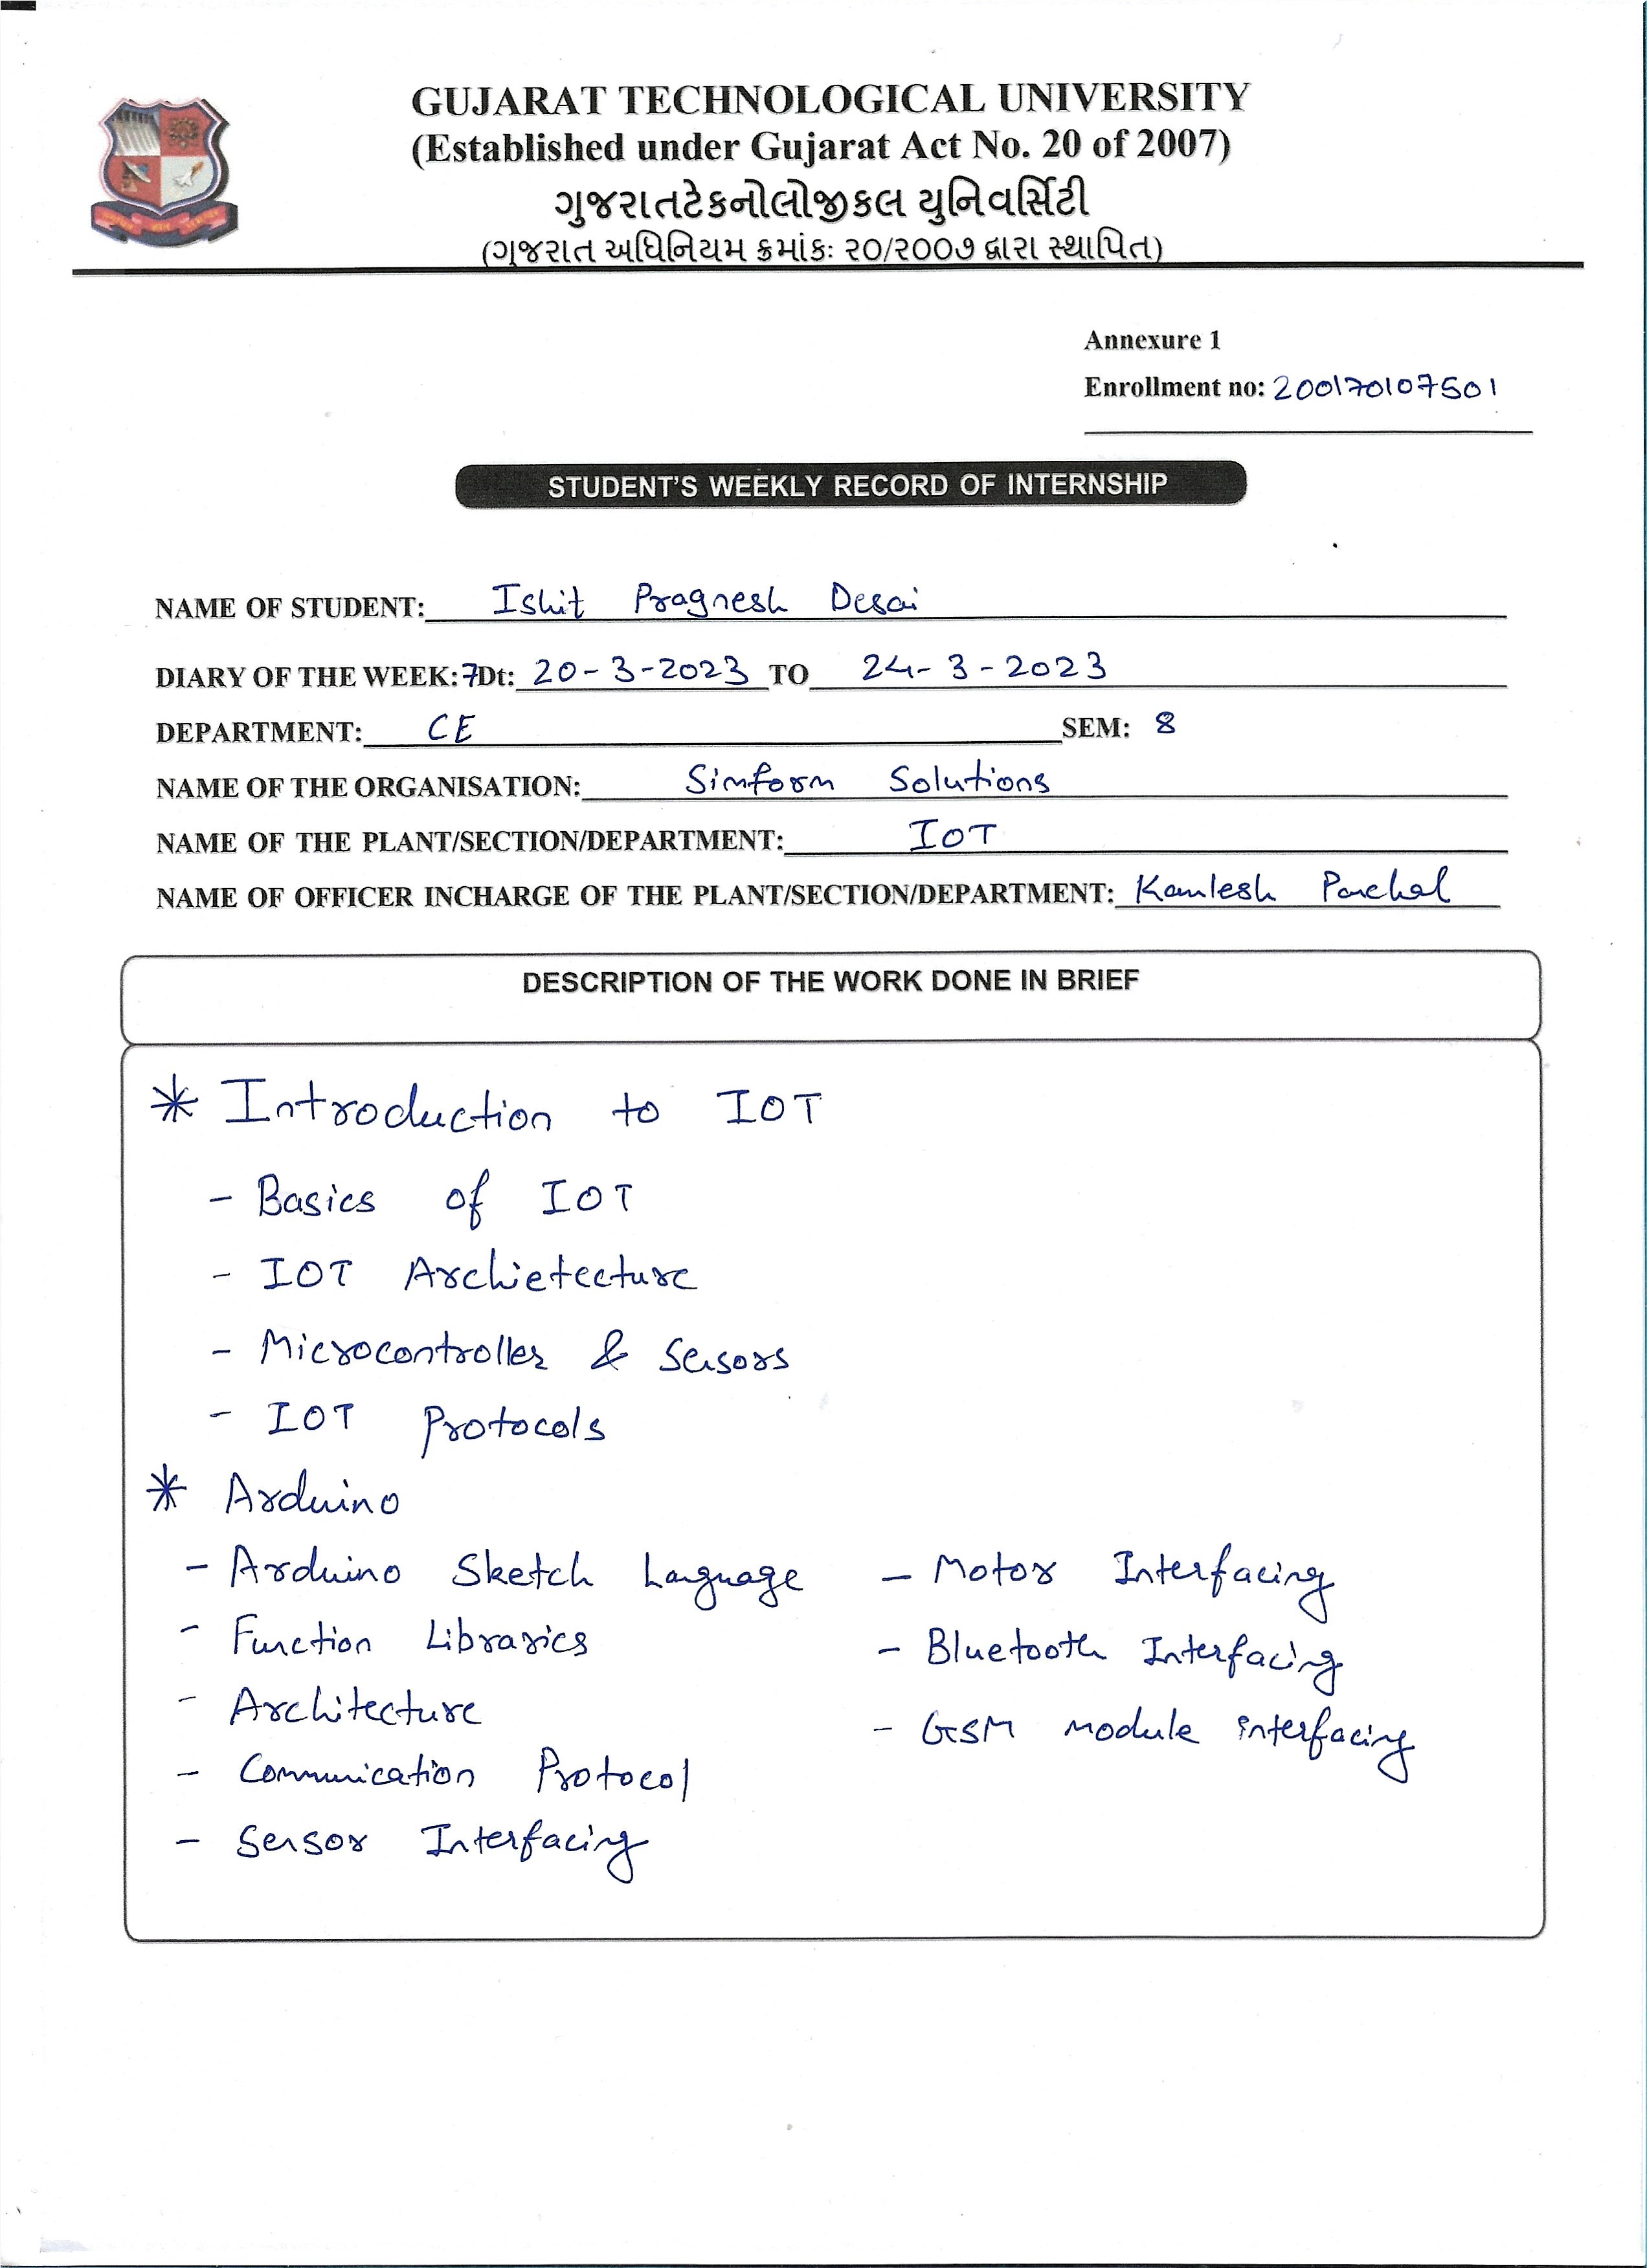 GUJARAT TECHNOLOGICAL UNIVERSITY
(Established under Gujarat Act No. 20 of 2007)
ગુજરાતટેકનોલોજીકલ યુનિવર્સિટી
(ગુજરાત અધિનિયમ ક્રમાંકઃ ૨૦/૨૦૦૭ દ્વારા સ્થાપિત)
Annexure 1
Enrollment no: 200170107501
STUDENT'S WEEKLY RECORD OF INTERNSHIP
NAME OF STUDENT: Ishit Pragnesh Desai
DIARY OF THE WEEK:7Dt: 20-3-2023 TO 24-3-2023
DEPARTMENT: CE SEM: 8
NAME OF THE ORGANISATION: Simform Solutions
NAME OF THE PLANT/SECTION/DEPARTMENT: IOT
NAME OF OFFICER INCHARGE OF THE PLANT/SECTION/DEPARTMENT: Kamlesh
DESCRIPTION OF THE WORK DONE IN BRIEF
* Introduction to IOT
- Basics of IOT
- IOT Archietecture
- Microcontroller & Sensors
- IOT Protocols
* Arduino
- Arduino Sketch Language
- Function Libraries
- Architecture
- Communication Protocol
- Sensor Interfacing
- Motor Interfacing
- Bluetooth Interfacing
- GSM module interfacing